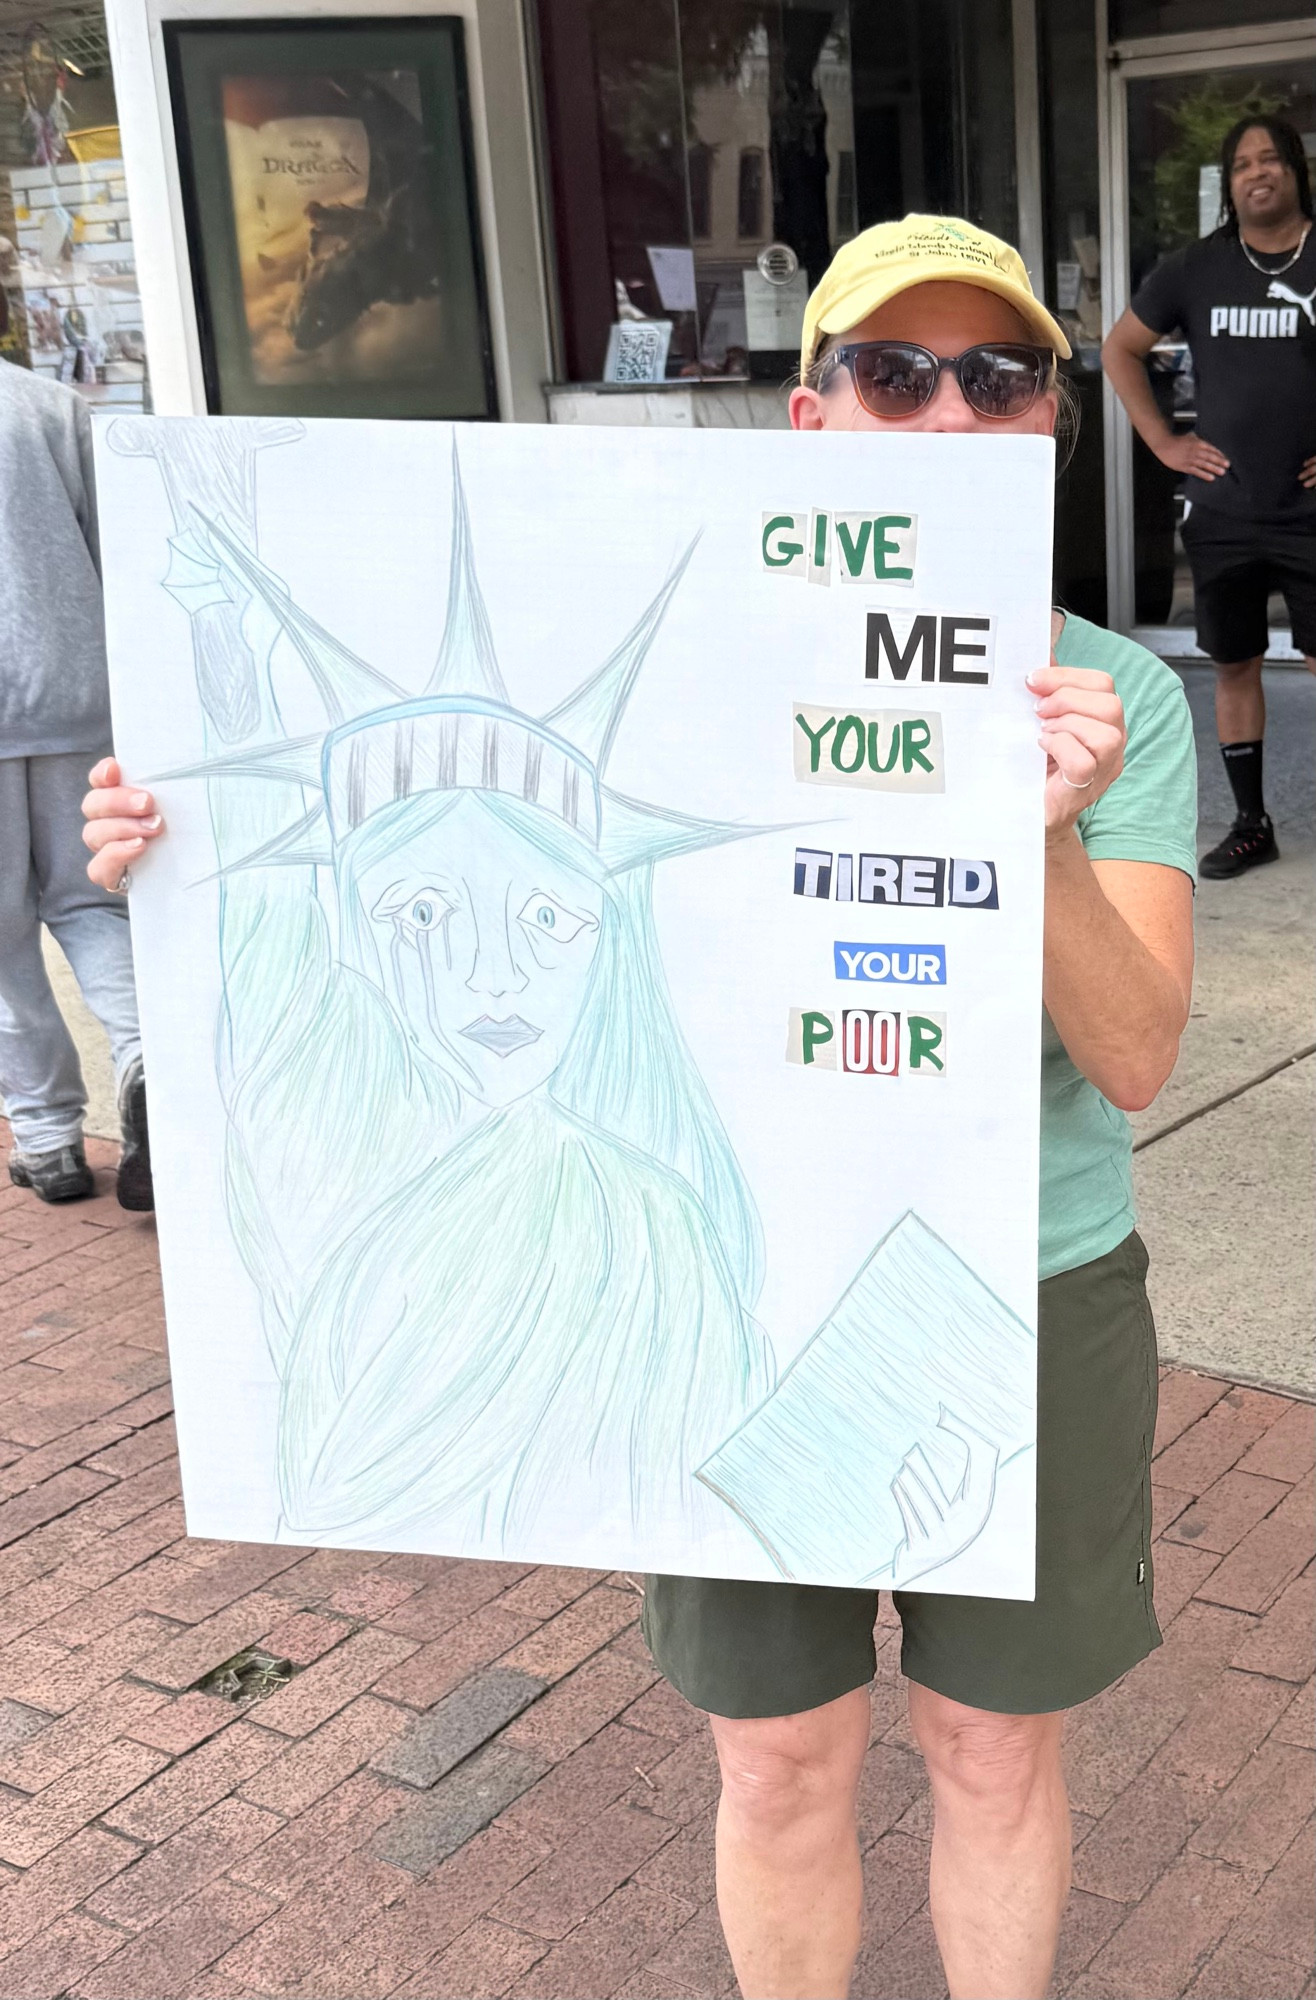 DRAGON
Friends
Virgin Islands National
St John, USVI
PUMA
GIVE
ME
YOUR
TIRED
YOUR
POOR